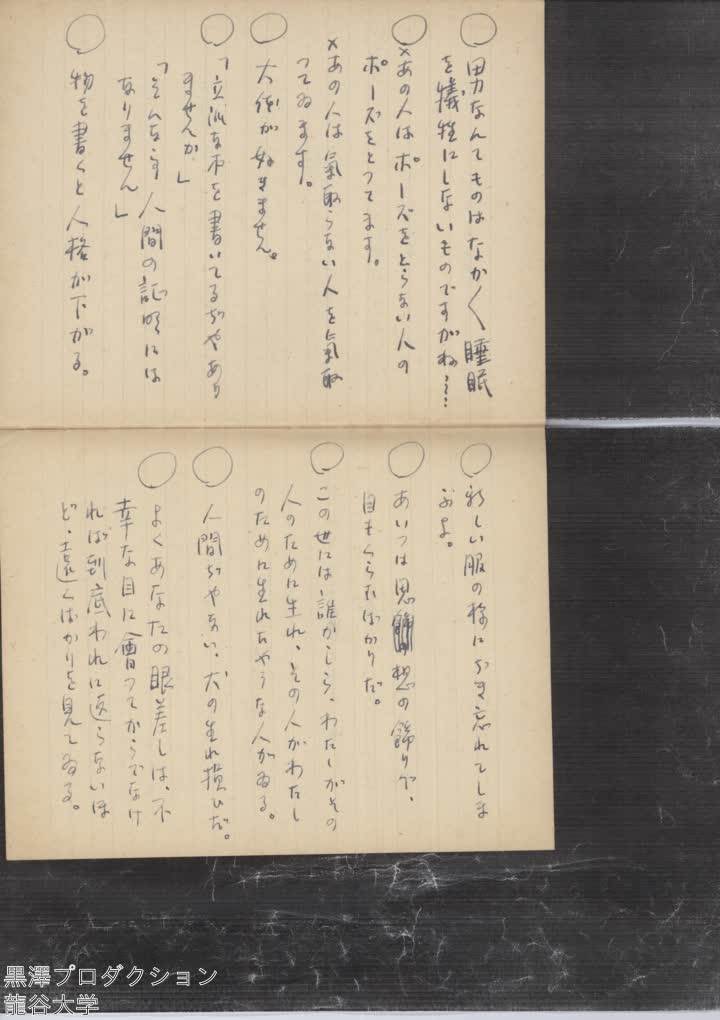 ○ 男なんてものはなか〱睡眠
を犠牲にしないものですがね……
○ ×あの人はポーズをとらない人の
ポーズをとつてます。
×あの人は氣取らない人を氣取
つてゐます。
○ 大佐が好きません。
○ 「立派な本を書いてるぢやあり
ませんか」
「そんな事人間の証明には
なりません」
○ 物を書くと人格が下がる。
○ 新しい服の様にぢき忘れてしま
ふよ。
○ あいつは思想の飾りで、
目もくらむばかりだ。
○ この世には誰かしら、わたしがその
人のために生れ、その人がわたし
のために生れたやうな人がゐる。
○ 人間ぢやない、犬の生れ損ひだ。
○ よくあなたの眼差しは、不
幸な目に會つてからでなけ
れば到底われに返らないほ
ど、遠くばかりを見てゐる。
黒澤プロダクション
龍谷大学